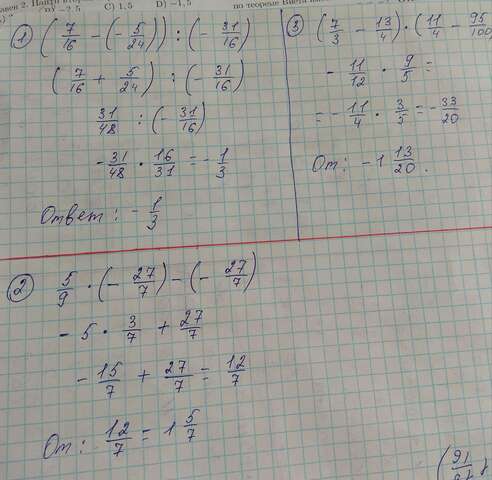 D) -2,5 C) 1,5 D) -1,5
по теореме Виета
1 (7/16 - (-5/24)) : (-31/16)
(7/16 + 5/24) : (-31/16)
31/48 : (-31/16)
-31/48 · 16/31 = -1/3
Ответ: -1/3
3 (7/3 - 13/4) · (11/4 - 95/100
- 11/12 · 9/5 =
= -11/4 · 3/5 = -33/20
От: -1 13/20.
2 5/9 · (-27/7) - (-27/7)
- 5 · 3/7 + 27/7
- 15/7 + 27/7 = 12/7
От: 12/7 = 1 5/7